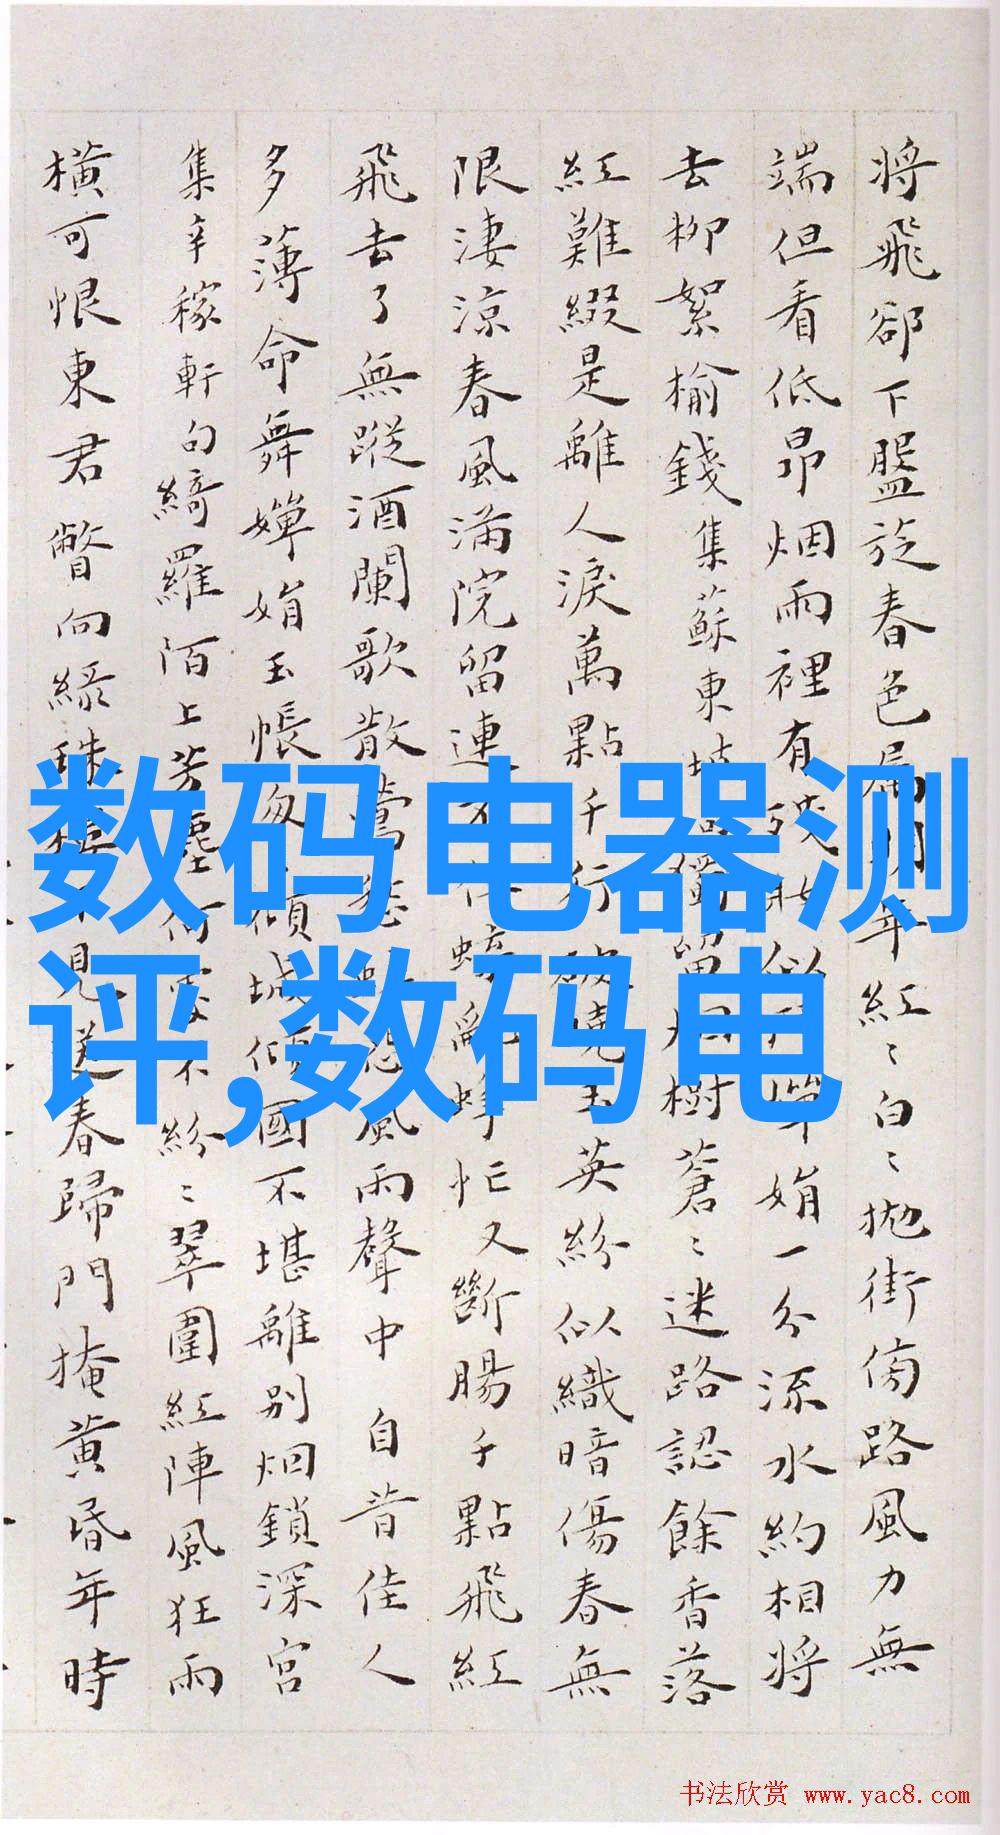 将飛卻下盤旋春色年紅〻白〻拋街傍路風力無
端但看低昂烟雨裡有似嬋娟一分流水約相將
去柳絮榆錢集蘇東坡烟樹蒼〻迷路認餘香落
紅難綴是離人淚萬點千行破曉玉英紛似織暗傷春無
限淒涼春風滿院留連蜂忙又斷腸千點飛紅
飛去了無蹤酒闌歌散鶯愁恐風雨聲中 自昔佳人
多薄命舞嬋娟玉帳匆傾城傾國不堪離別烟鎖深宮
集辛稼軒句綺羅陌上芳塵何不紛〻翠圍紅陣風狂雨
橫可恨東君瞥向綠珠樓見送春歸門掩黃昏年時
数码电器测
评,数码电
书法欣赏 www.yac8.com